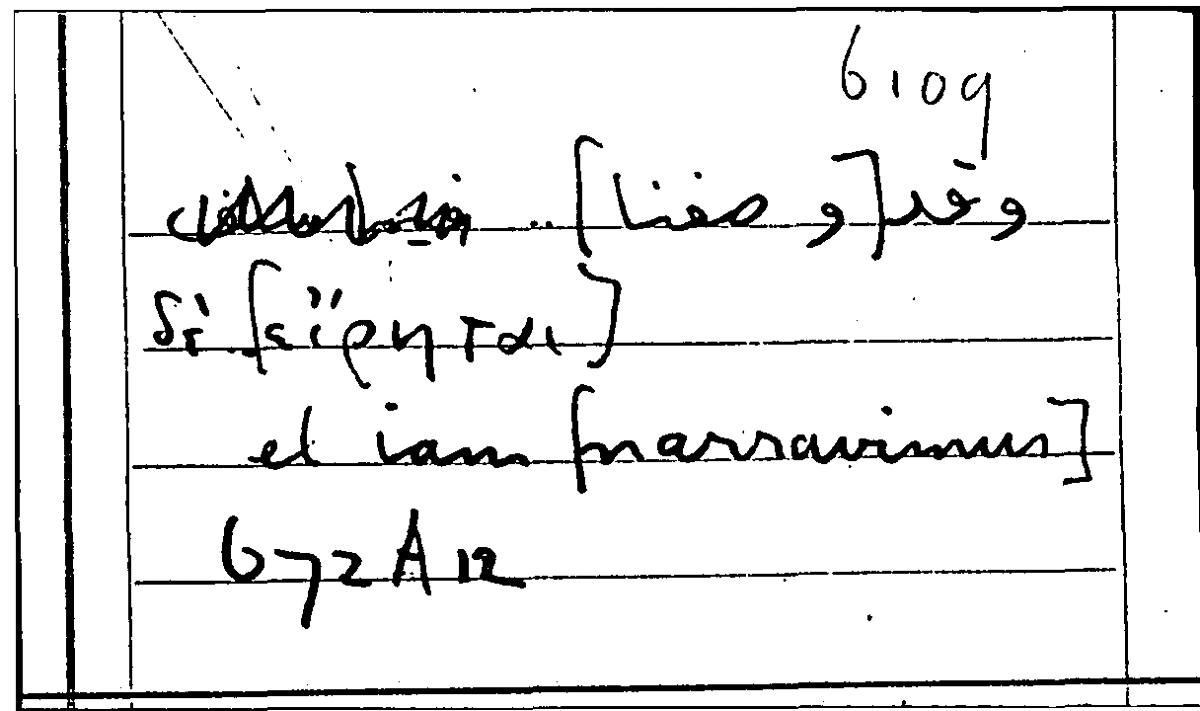 6109
وقد [وصفنا] ..
δὲ [εἴρηται]
et iam [narravimus]
672 A 12